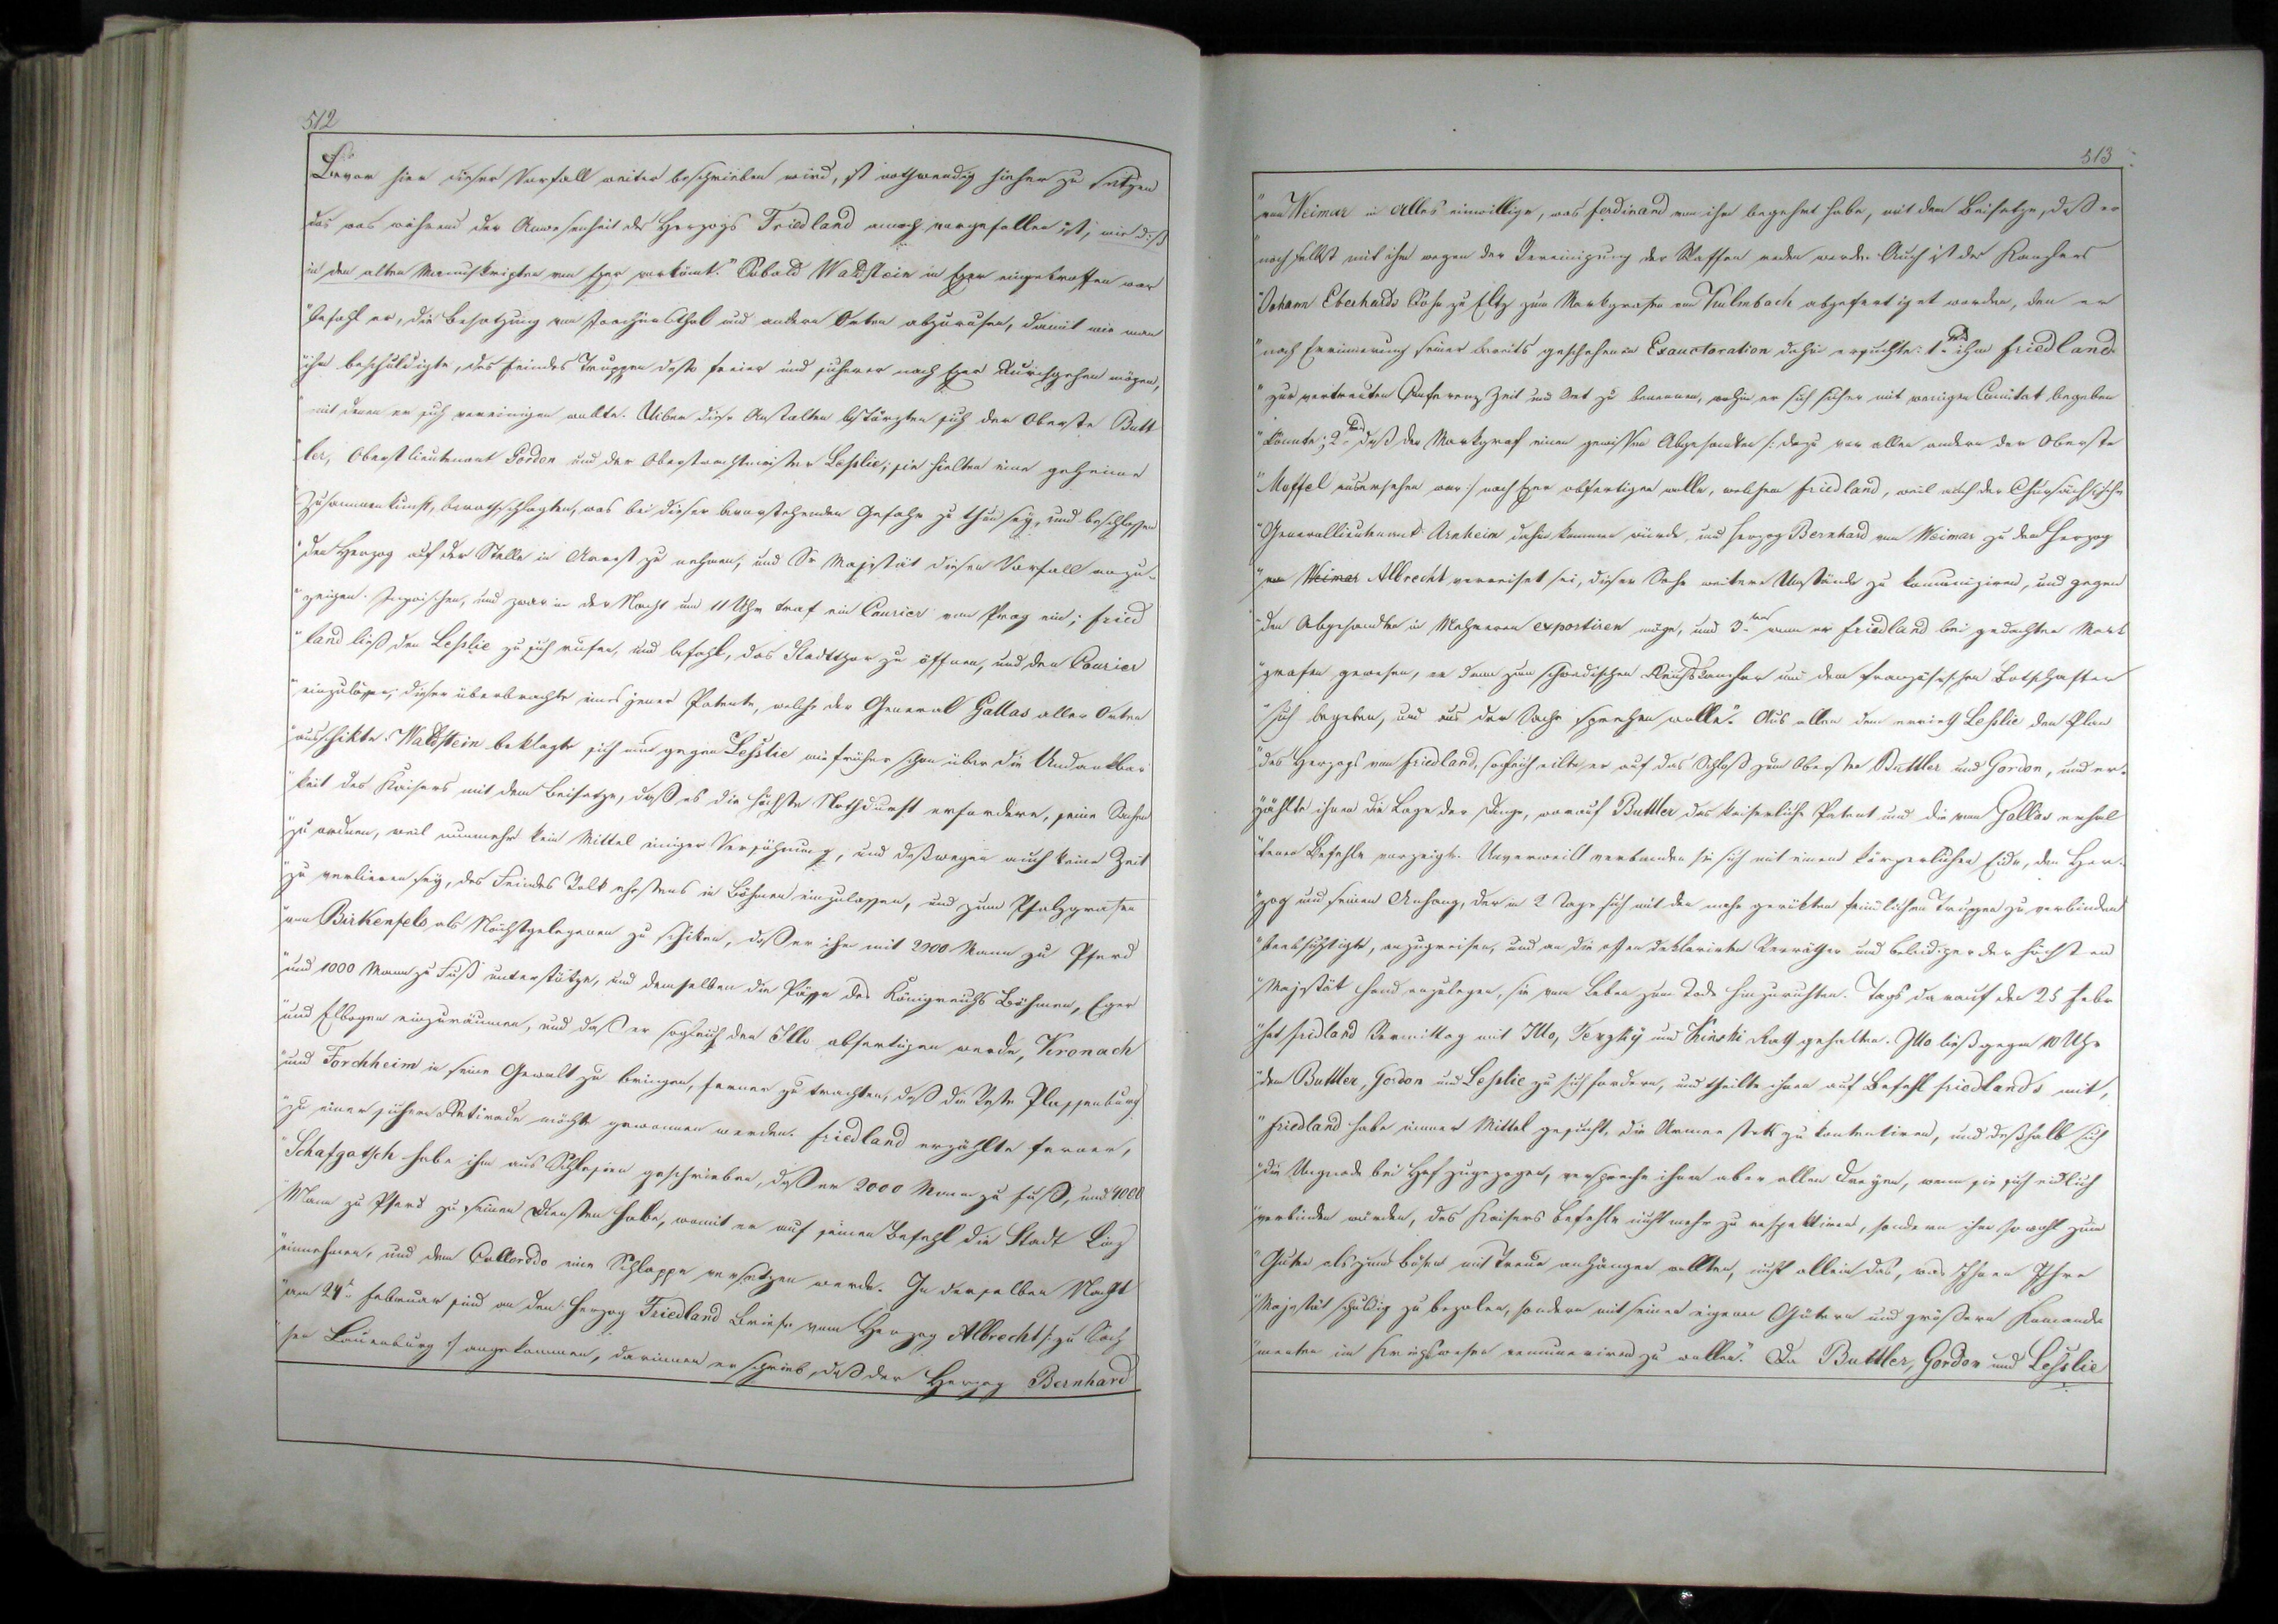 512
Bevor hier dieser Vorfall weiter beschrieben wird, ist nothwendig hieher zu setzen
das was während der Anwesenheit des Herzogs Friedland annoch vorgefallen ist, wie dieß
in den alten Manuskripten von Eger vorkömt. "Sobald Waldstein in Eger eingetroffen war
"befahl er, die Besatzung von Joachimsthal und andern Orten abzurufen, damit wie man
"ihn beschuldigte, des Feindes Truppen desto freier und sicherer nach Eger durchgehen mögen,
"mit denen er sich vereinigen wollte. Uiber diese Anstalten bestürzten sich der Oberste Butt
"ler, Oberstlieutenant Gordon und der Oberstwachtmeister Leßlie; sie hielten eine geheime
"Zusammenkunft, berathschlagten, was bei dieser bevorstehenden Gefahr zu thun sey, und beschlossen
"den Herzog auf der Stelle in Arrest zu nehmen, und Sr Majestät diesen Vorfall anzu-
"zeigen. Inzwischen, und zwar in der Nacht um 11 Uhr traf ein Courier von Prag ein; Fried
"land ließ den Leßlie zu sich rufen, und befahl, das Stadtthor zu öffnen, und den Courier
"einzulassen; dieser überbrachte eines jener Patente, welche der General Gallas aller Orten
"ausschikte. Waldstein beklagte sich nun gegen Leßlie wie früher schon über die Undankbar
"keit des Kaisers mit dem Beisatze, daß es die höchste Nothdurft erfordere, seine Sachen
"zu ordnen, weil nunmehr kein Mittel einiger Versöhnung, und deßwegen auch keine Zeit
"zu verlieren sey, des Feindes Volk ehestens in Böhmen einzulassen, und zum Pfalzgrafen
"von Birkenfels als Nächstgelegenen zu schiken, daß er ihn mit 2000 Mann zu Pferd
"und 1000 Mann zu Fuß unterstütze, und demselben die Pässe des Königreichs Böhmen, Eger
"und Elbogen einzuräumen, und daß er sogleich den Illo abfertigen werde, Kronach
"und Forchheim in seine Gewalt zu bringen, ferner zu trachten, daß die Veste Plassenburg
"zu einer sichern Retirade möchte gewonnen werden. Friedland erzählte ferner,
"Schafgotsch habe ihm aus Schlesien geschrieben, daß er 2000 Mann zu Fuß, und 4000
"Mann zu Pferd zu seinen Diensten habe, womit er auf seinen Befehl die Stadt Linz
"einnehmen, und dem Colloredo eine Schlappe versetzen werde. In derselben Nacht
"am 24t Februar sind an den Herzog Friedland Briefe vom Herzog Albrecht /: zu Sach
"sen Lauenburg :/ angekommen, darinnen er schrieb, daß der Herzog Bernhard
513
"von Weimar in Alles einwillige, was Ferdinand von ihm begehrt habe, mit dem Beisatze, daß er
"noch selbst mit ihm wegen der Vereinigung der Waffen reden werde. Auch ist des Kanzlers
"Johann Eberhards Sohn zu Eltz zum Markgrafen von Kulmbach abgefertiget worden, den er
"nach Erinnerung seiner bereits geschehenen Exauctoration dahin ersuchte: 1. ihm Friedland
"zur vertrauten Conferenz Zeit und Ort zu benennen, wohin er sich sicher mit weniger Comitat begeben
"könnte; 2. daß der Markgraf einen gewissen Abgesandten /: dazu vor allen andern der Oberste
"Moffel ausersehen war :/ nach Eger abfertigen wolle, welchem Friedland, weil auch der Chursächsische
"Generallieutenant Arnheim dahin kommen würde, und Herzog Bernhard von Weimar zu dem Herzog
"von Weimar Albrecht verreiset sei, dieser Sache weitere Umstände zu kommuniziren, und gegen
"den Abgesandten in Mehreren expostiren möge, und 3. wenn er Friedland bei gedachten Mark
"grafen gewesen, er dann zum schwedischen Reichskanzler und dem französischen Botschafter
"sich begeben, und aus der Sache sprechen wolle". Aus allen dem errieth Leßlie den Plan
"des Herzogs von Friedland, sogleich eilte er auf das Schloß zum Obersten Buttler und Gordon, und er-
"zählte ihnen die Lage der Dinge, worauf Buttler das kaiserliche Patent und die von Gallas erhal
"tenen Befehle vorzeigte. Unverweilt verbanden sie sich mit einem körperlichen Eide, den Her-
"zog und seinen Anhang, der in 2 Tage sich mit den nahe gerükten feindlichen Truppen zu verbinden
"beabsichtigte, anzugreifen, und an die offen deklarirten Verräther und Beleidiger der höchsten
"Majestät Hand anzulegen, sie vom Leben zum Tode hinzurichten. Tags darauf den 25 Febr
"hat Fridland Vormittag mit Illo, Terzky und Kinski Rath gehalten. Illo ließ gegen 10 Uhr
"den Buttler, Gordon und Leßlie zu sich fordern, und theilte ihnen auf Befehl Friedlands mit,
"Friedland habe immer Mittel gesucht, die Armee stets zu kontentiren, und deßhalb sich
"die Ungnade bei Hof zugezogen, verspreche ihnen aber allen Dreyen, wenn sie sich eidlich
"verbinden würden, des Kaisers Befehle nicht mehr zu respektiren, sondern ihm sowohl zum
"Guten als zum Bösen mit Treue anhängen wollten, nicht allein das, was Ihnen Ihre
"Majestät schuldig zu bezalen, sondern mit seinen eigenen Gütern und größern Komando
"menten im Kriegswesen remuneriren zu wollen." Da Buttler, Gordon und Leßlie